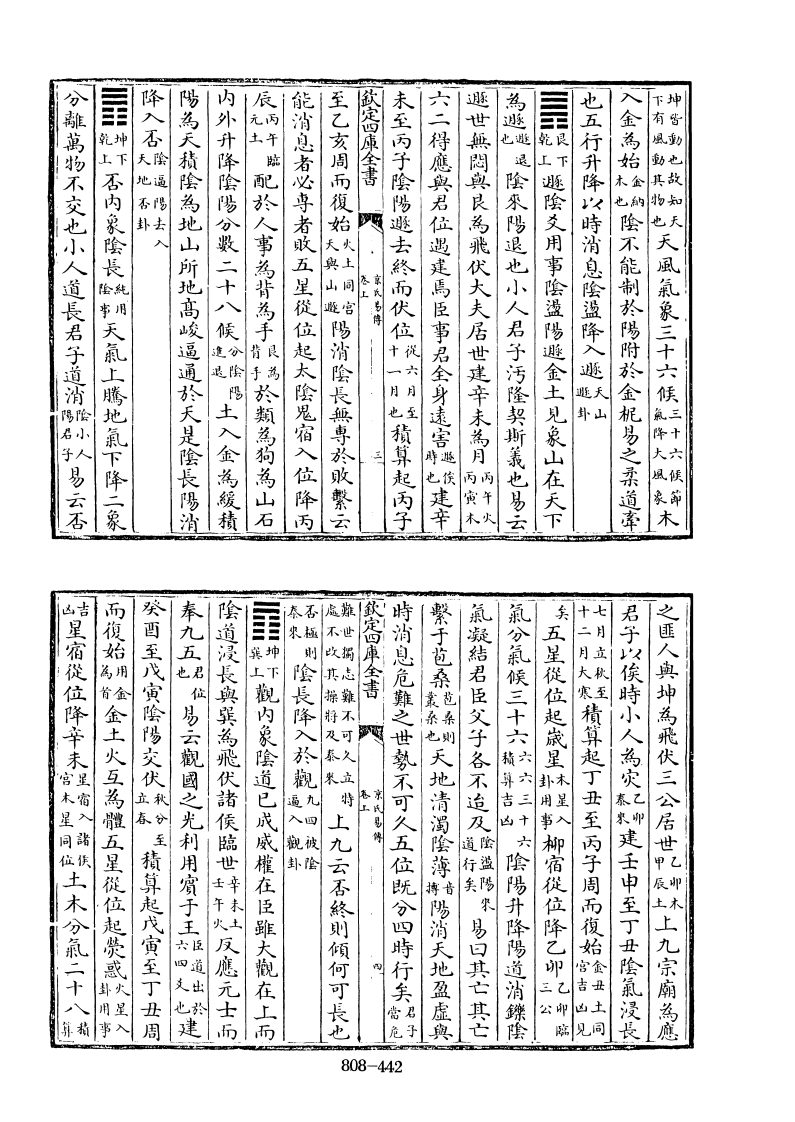 坤皆動也故知天下有風動其物也天風氣象三十六候三十六候節氣降大風象木
入金為始金納木也陰不能制於陽附於金柅易之柔道牽
也五行升降以時消息陰盪降入遯天山遯卦
䷠艮下乾上遯陰爻用事陰盪陽遯金土見象山在天下
為遯遯退也陰來陽退也小人君子汚隆契斯義也易云
遯世無悶與艮為飛伏大夫居世建辛未為月丙午火丙寅木
六二得應與君位遇建焉臣事君全身遠害遯俟時也建辛
未至丙子陰陽遯去終而伏位從六月至十一月也積算起丙子
欽定四庫全書 京氏易傳卷上 三
至乙亥周而復始火土同宫天與山遯陽消陰長無專於敗繫云
能消息者必專者敗五星從位起太陰鬼宿入位降丙
辰丙午臨元土配於人事為背為手艮為背手於類為狗為山石
内外升降陰陽分數二十八候分陰陽進退土入金為緩積
陽為天積陰為地山所地髙峻逼通於天是陰長陽消
降入否陰逼陽去入天地否卦
䷋坤下乾上否内象陰長純用陰事天氣上騰地氣下降二象
分離萬物不交也小人道長君子道消陰小人陽君子易云否
之匪人與坤為飛伏三公居世乙卯木甲辰土上九宗廟為應
君子以俟時小人為灾乙卯泰來建壬申至丁丑陰氣浸長
七月立秋至十二月大寒積算起丁丑至丙子周而復始金丑土同宫吉凶見
矣五星從位起歳星木星入卦用事柳宿從位降乙卯乙卯臨三公
氣分氣候三十六六六三十六積算吉凶陰陽升降陽道消鑠陰
氣凝結君臣父子各不迨及陰盪陽來道行矣易曰其亡其亡
繫于苞桑苞桑則叢桑也天地清濁陰薄音搏陽消天地盈虛與
時消息危難之世勢不可久五位既分四時行矣君子當危
欽定四庫全書 京氏易傳卷上 四
難世獨志難不可久立特處不改其操將及泰來上九云否終則傾何可長也
否極則泰來陰長降入於觀九四被陰逼入觀卦
䷓坤下巽上觀内象陰道已成威權在臣雖大觀在上而
陰道浸長與巽為飛伏諸侯臨世辛未土壬午火反應元士而
奉九五君位也易云觀國之光利用賓于王臣道出於六四爻也建
癸酉至戊寅陰陽交伏秋分至立春積算起戊寅至丁丑周
而復始用金為首金土火互為體五星從位起熒惑火星入卦用事
吉凶星宿從位降辛未星宿入諸侯宫木星同位土木分氣二十八積算
808-442